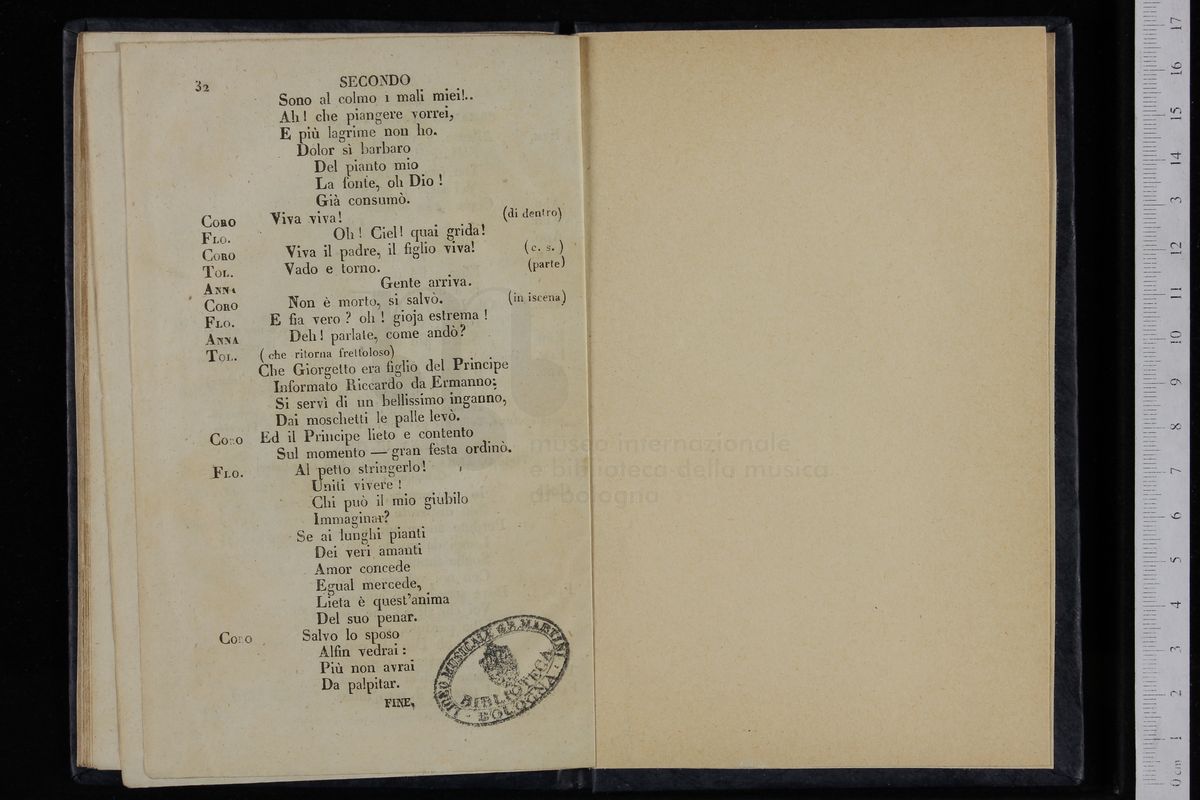 32
SECONDO
Sono al colmo i mali miei!..
Ah! che piangere vorrei,
E più lagrime non ho.
Dolor sì barbaro
Del pianto mio
La fonte, oh Dio !
Già consumò.
CORO Viva viva! (di dentro)
FLO. Oh! Ciel! quai grida!
CORO Viva il padre, il figlio viva! (c. s.)
TOL. Vado e torno. (parte)
ANNA Gente arriva.
CORO Non è morto, si salvò. (in iscena)
FLO. E fia vero ? oh ! gioja estrema !
ANNA Deh! parlate, come andò?
TOL. (che ritorna frettoloso)
Che Giorgetto era figlio del Principe
Informato Riccardo da Ermanno;
Si servì di un bellissimo inganno,
Dai moschetti le palle levò.
CORO Ed il Principe lieto e contento
Sul momento — gran festa ordinò.
FLO. Al petto stringerlo!
Uniti vivere !
Chi può il mio giubilo
Immaginar?
Se ai lunghi pianti
Dei veri amanti
Amor concede
Egual mercede,
Lieta è quest'anima
Del suo penar.
CORO Salvo lo sposo
Alfin vedrai :
Più non avrai
Da palpitar.
FINE,
LICEO MUSICALE G. B. MARTINI
BIBLIOTECA
BOLOGNA
museo internazionale
e biblioteca della musica
di bologna
17
16
15
14
13
12
11
10
9
8
7
6
5
4
3
2
1
0 cm